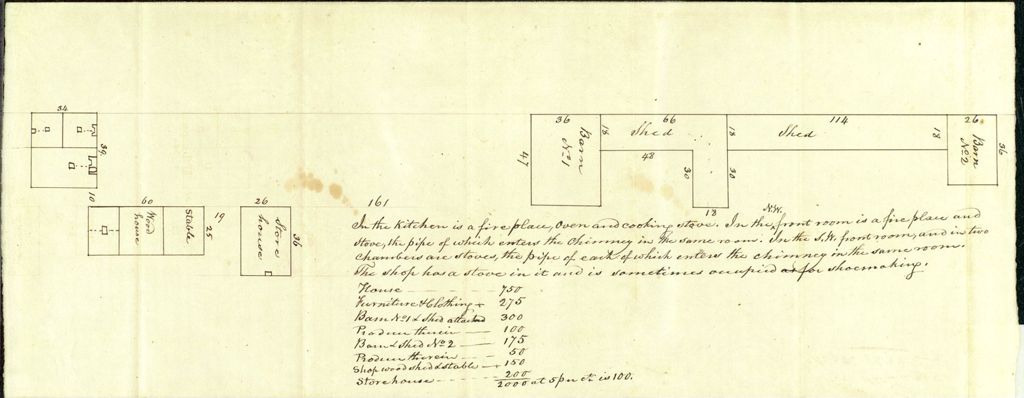 34
39
10
60
Wood house
Stable
25
19
26
Store house
36
161
36
47
Barn No. 1
18
66
Shed
48
30
18
30
18
114
Shed
18
26
Barn No. 2
36
N.W.
In the Kitchen is a fire place, oven and cooking stove. In the front room is a fire place and
stove, the pipe of which enters the chimney in the same room. In the S.W. front room, and in two
chambers are stoves, the pipe of each of which enters the chimney in the same room.
The shop has a stove in it and is sometimes occupied for shoemaking.
House 750
Furniture & Clothing + 275
Barn No. 1 & Shed attached 300
Produce therein 100
Barn & Shed No. 2 175
Produce therein 50
Shop wood shed & stable + 150
Storehouse 200
2000 at 5 per ct. is 100.